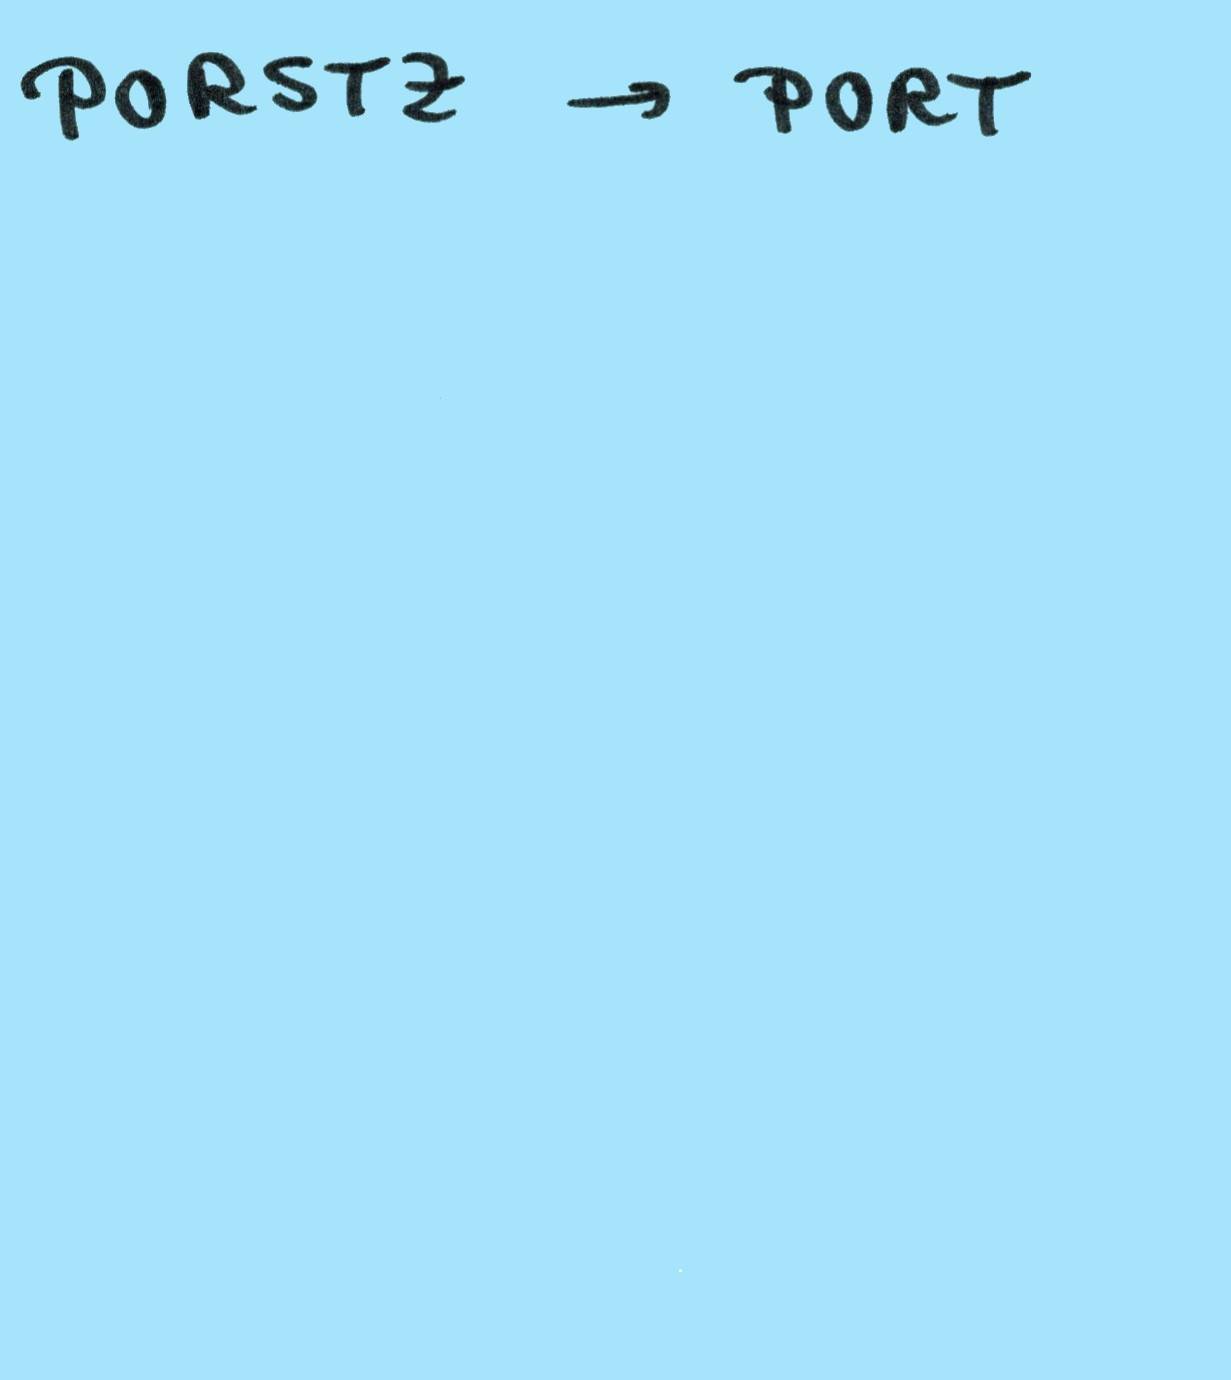 PORSTZ → PORT